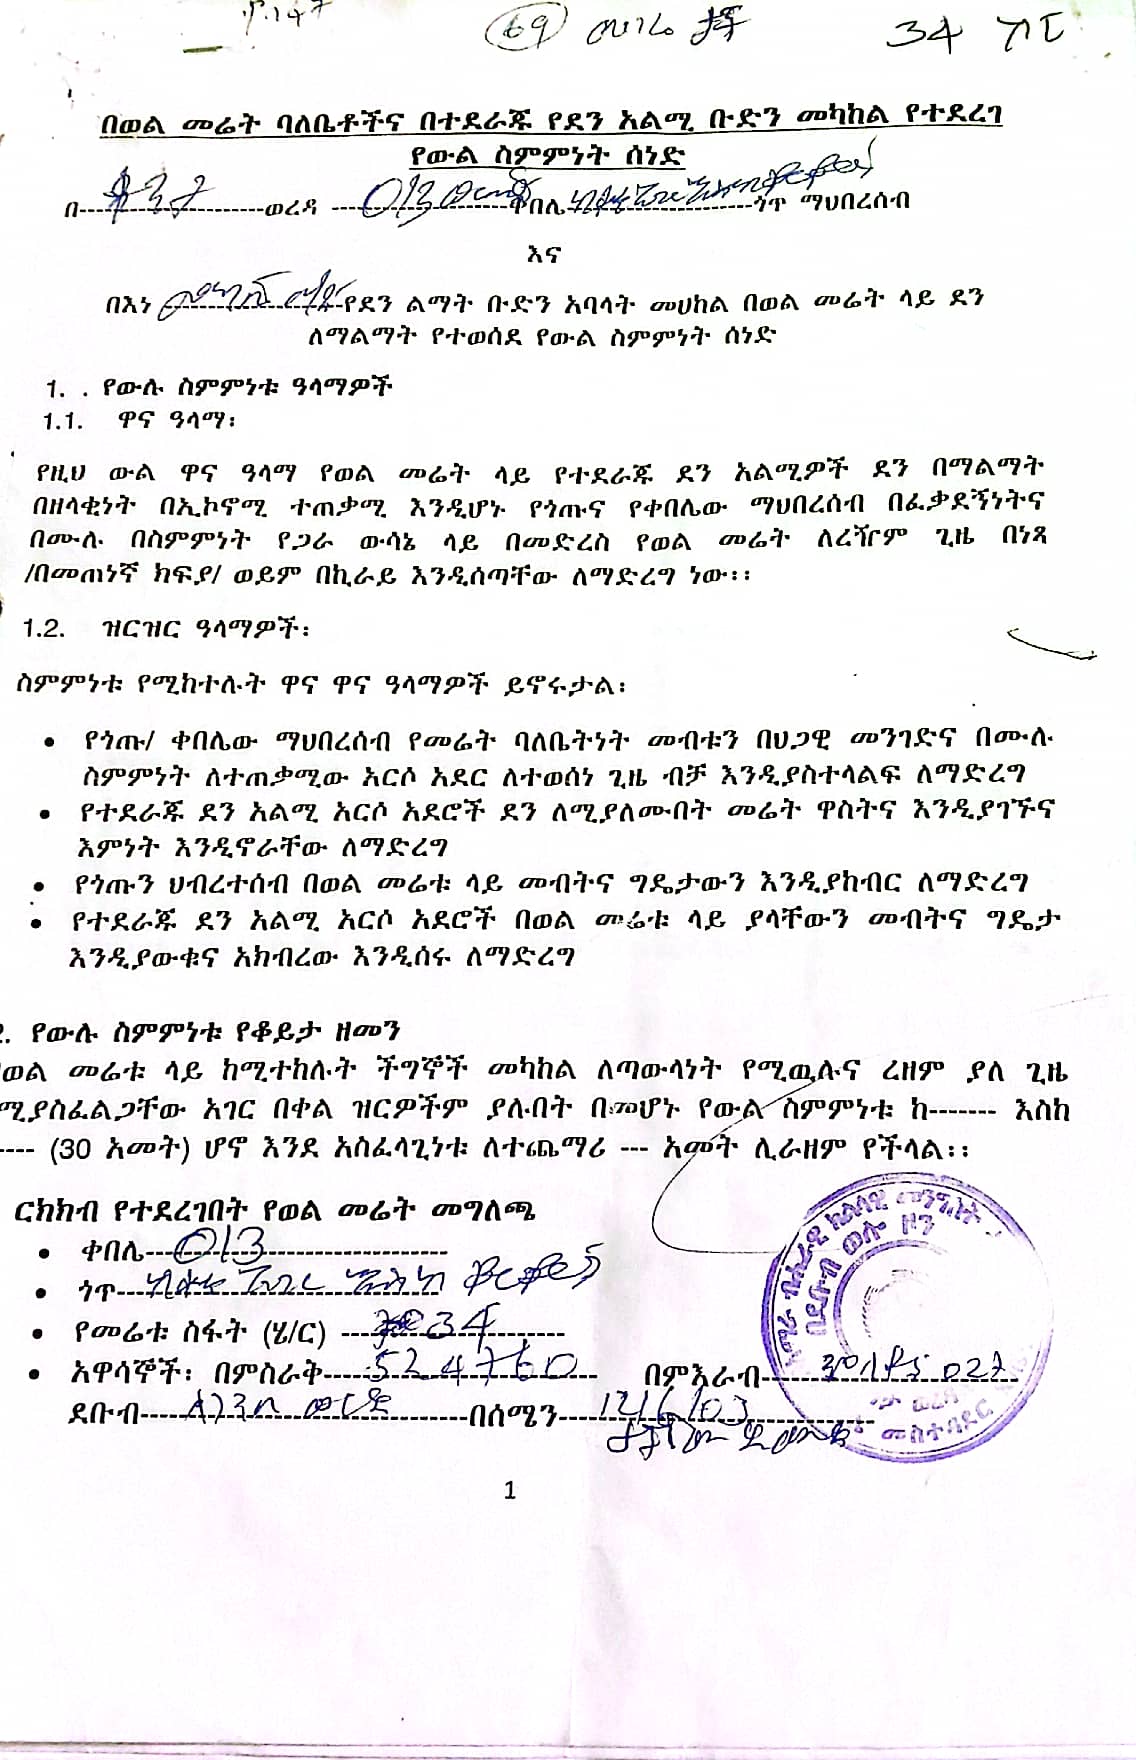 69
34
በወል መሬት ባለቤቶችና በተደራጁ የደን አልሚ ቡድን መካከል የተደረገ
የውል ስምምነት ሰነድ
በ----------------------ወረዳ ---------------------ቀበሌ----------------------ጎጥ ማህበረሰብ
እና
በእነ ----------------------የደን ልማት ቡድን አባላት መሀከል በወል መሬት ላይ ደን
ለማልማት የተወሰደ የውል ስምምነት ሰነድ
1. . የውሉ ስምምነቱ ዓላማዎች
1.1. ዋና ዓላማ፡
የዚህ ውል ዋና ዓላማ የወል መሬት ላይ የተደራጁ ደን አልሚዎች ደን በማልማት
በዘላቂነት በኢኮኖሚ ተጠቃሚ እንዲሆኑ የጎጡና የቀበሌው ማህበረሰብ በፈቃደኝነትና
በሙሉ በስምምነት የጋራ ውሳኔ ላይ በመድረስ የወል መሬት ለረዥም ጊዜ በነጻ
/በመጠነኛ ክፍያ/ ወይም በኪራይ እንዲሰጣቸው ለማድረግ ነው፡፡
1.2. ዝርዝር ዓላማዎች፡
ስምምነቱ የሚከተሉት ዋና ዋና ዓላማዎች ይኖሩታል፡
• የጎጡ/ ቀበሌው ማህበረሰብ የመሬት ባለቤትነት መብቱን በህጋዊ መንገድና በሙሉ
ስምምነት ለተጠቃሚው አርሶ አደር ለተወሰነ ጊዜ ብቻ እንዲያስተላልፍ ለማድረግ
• የተደራጁ ደን አልሚ አርሶ አደሮች ደን ለሚያለሙበት መሬት ዋስትና እንዲያገኙና
እምነት እንዲኖራቸው ለማድረግ
• የጎጡን ህብረተሰብ በወል መሬቱ ላይ መብትና ግዴታውን እንዲያከብር ለማድረግ
• የተደራጁ ደን አልሚ አርሶ አደሮች በወል መሬቱ ላይ ያላቸውን መብትና ግዴታ
እንዲያውቁና አክብረው እንዲሰሩ ለማድረግ
2. የውሉ ስምምነቱ የቆይታ ዘመን
ወል መሬቱ ላይ ከሚተከሉት ችግኞች መካከል ለጣውላነት የሚዉሉና ረዘም ያለ ጊዜ
ሚያስፈልጋቸው አገር በቀል ዝርዎችም ያሉበት በመሆኑ የውል ስምምነቱ ከ------- እስከ
---- (30 አመት) ሆኖ እንደ አስፈላጊነቱ ለተጨማሪ --- አመት ሊራዘም የችላል፡፡
ርክክብ የተደረገበት የወል መሬት መግለጫ
• ቀበሌ---013----------------------
• ጎጥ---
• የመሬቱ ስፋት (ሄ/ር) ---34---------
• አዋሳኞች፡ በምስራቅ-----524760--- በምእራብ-----------------------
ደቡብ-----------------------------በሰሜን---
1